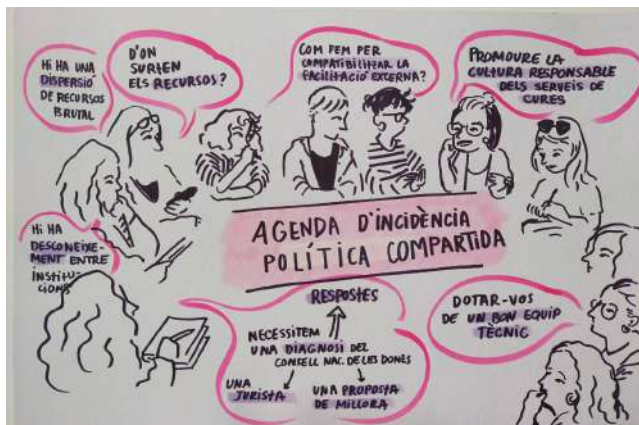 HI HA UNA
DISPERSIÓ
DE RECURSOS
BRUTAL
D'ON
SURTEN
ELS RECURSOS?
COM FEM PER
COMPATIBILITZAR LA
FACILITACIÓ EXTERNA?
PROMOURE LA
CULTURA RESPONSABLE
DELS SERVEIS DE
CURES
HI HA
DESCONEIXE-
MENT ENTRE
INSTITU-
CIONS
AGENDA D'INCIDÈNCIA
POLÍTICA COMPARTIDA
RESPOSTES
NECESSITEM
UNA DIAGNOSI DEL
CONSELL NAC. DE LES DONES
UNA
JURISTA
UNA PROPOSTA
DE MILLORA
DOTAR-VOS
DE UN BON EQUIP
TÈCNIC